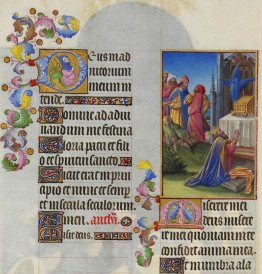 Deus in ad
iutorium
meum in
tende.
Domine ad adiu
uandum me festina
Gloria patri et fili
o et spiritui sancto.
Sicut erat in princ
ipio et nunc et semp
et in secula seculorum
Amen.
deus.
Miserere mei
deus misere
re mei quoniam in te
confidit anima mea.
Et in umbra ala